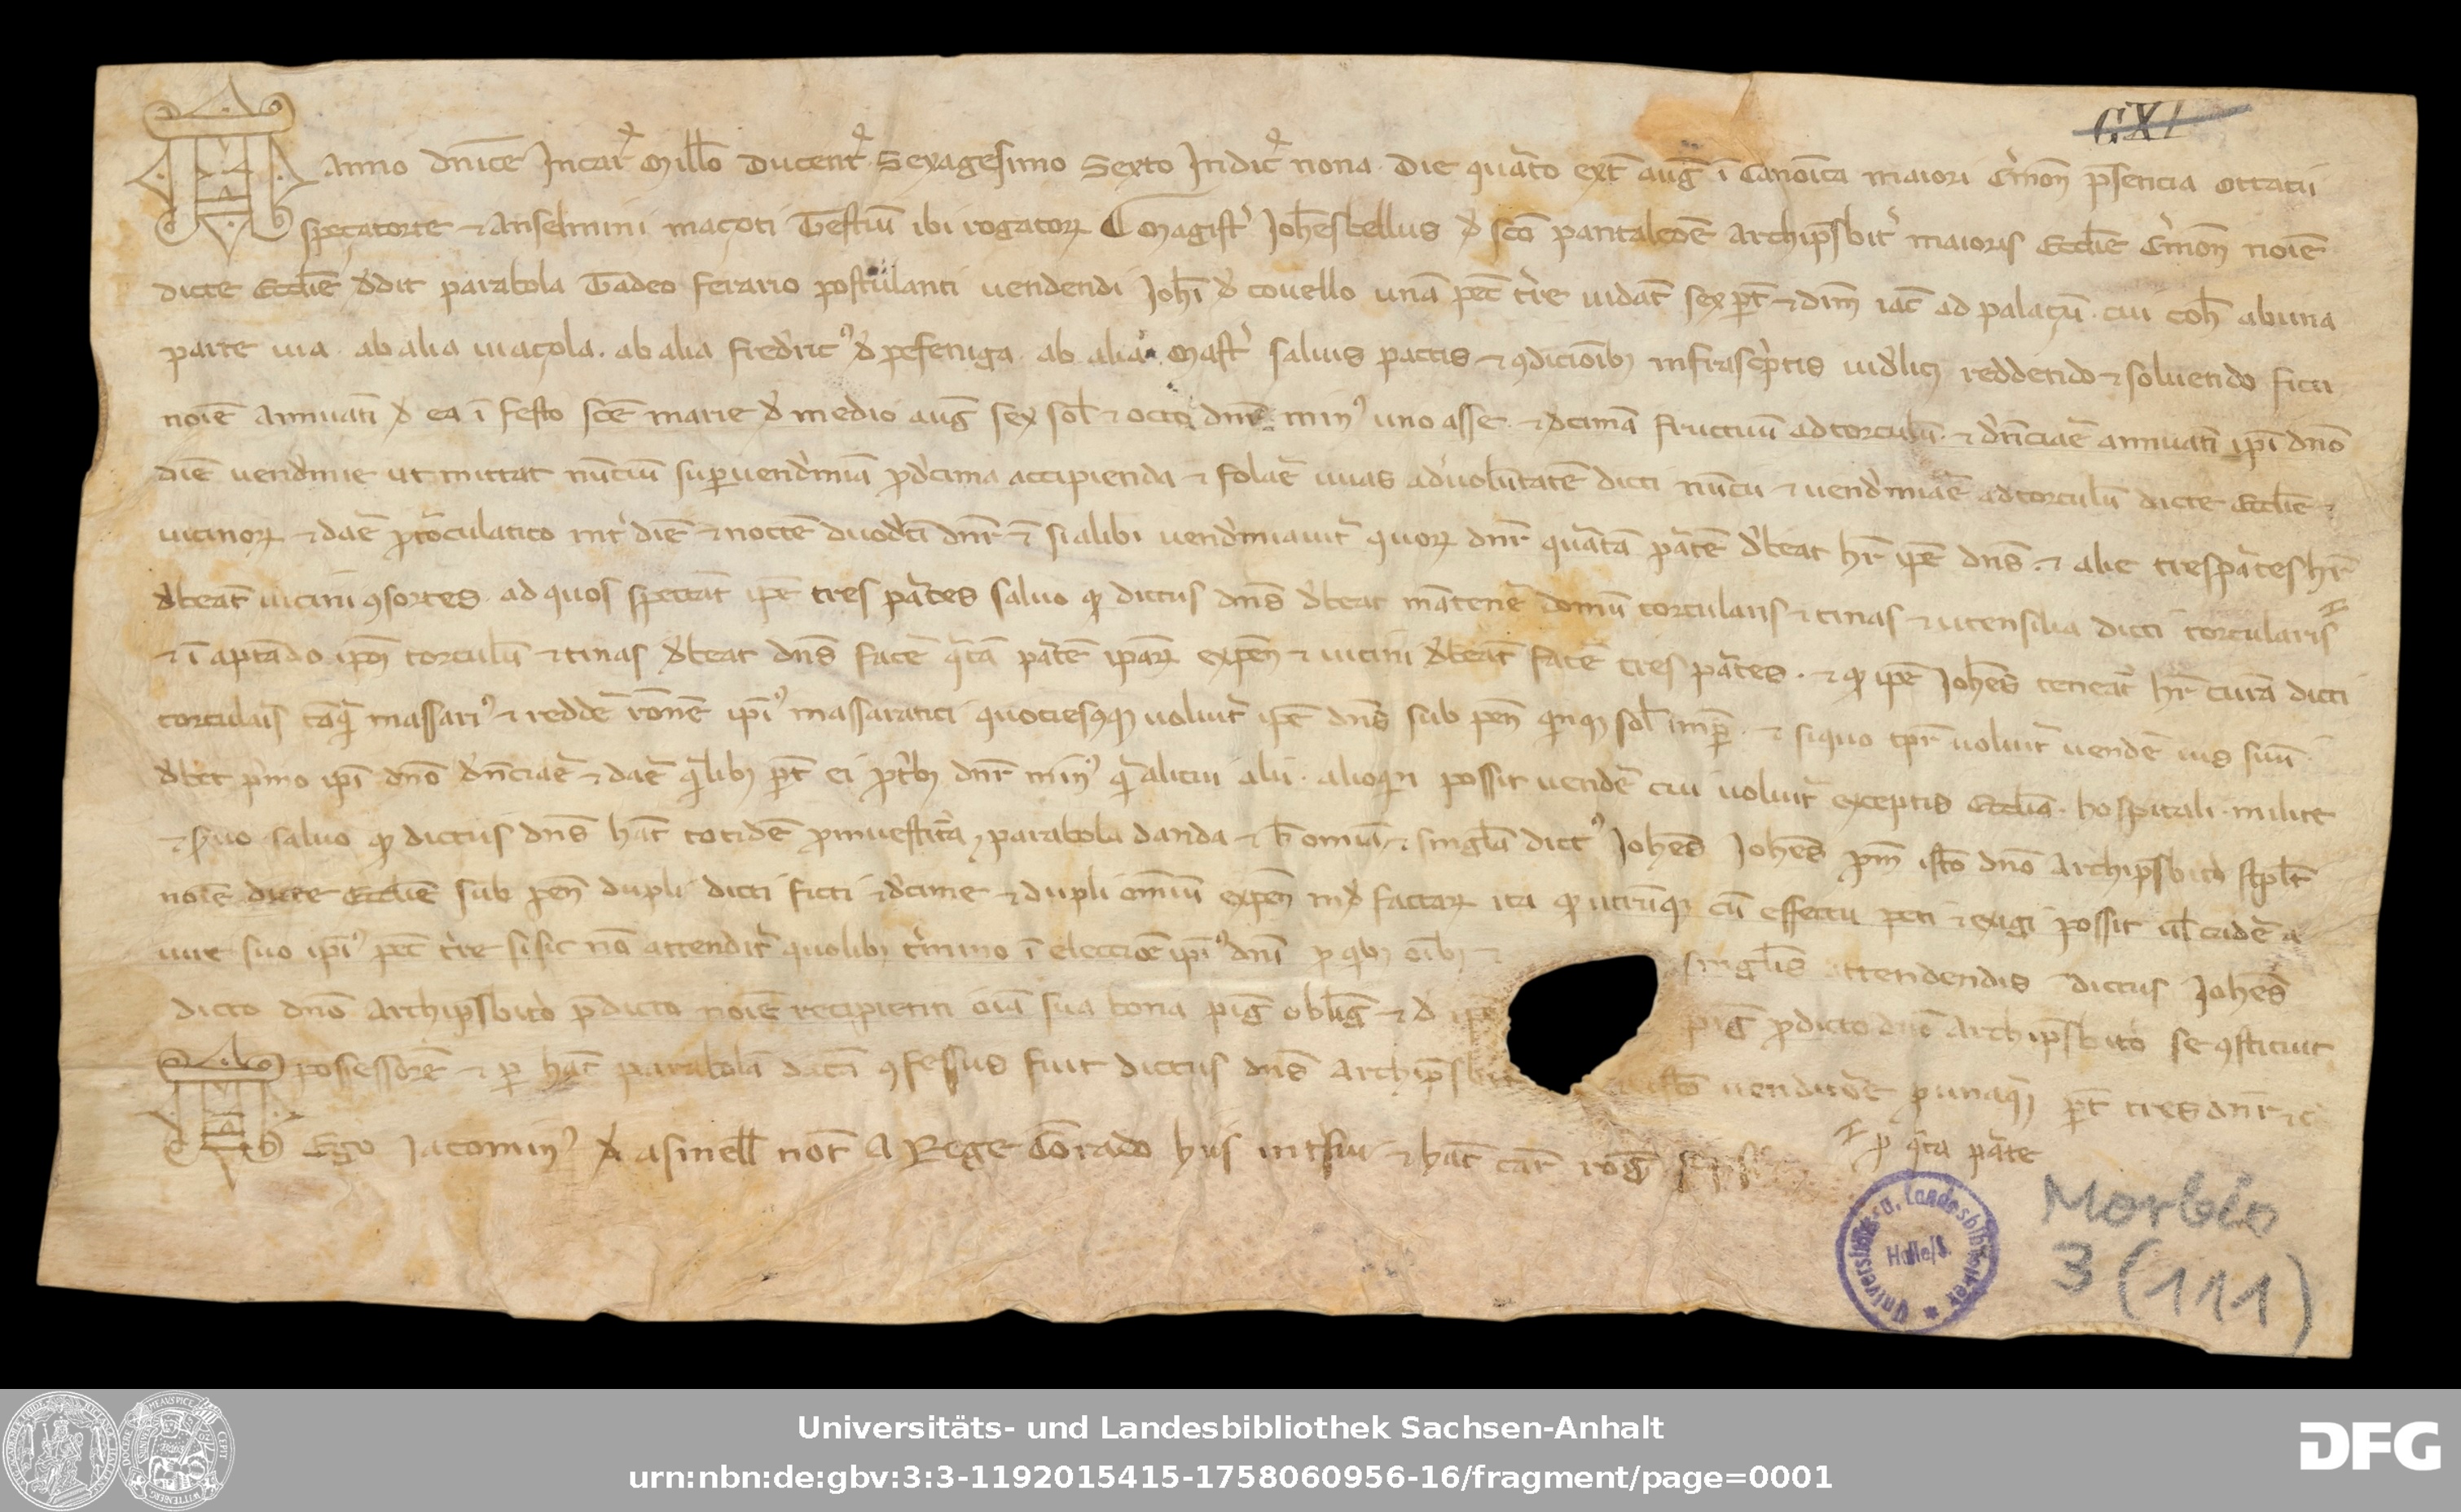 CXI
Anno dnice Incar Millo Ducent Sexagesimo Sexto Indic nona Die quarto ext aug i canoica maiori Cmon psencia ottacii
speçatorte & Anselmini maçoti Testiu ibi rogator Magist Johesbellus d sco pantaleoe Archipsbit maioris Ecclie Cmon noie
dicte Ecclie ddit parabola Tadeo ferario postulanti uendendi Johi d couello una pec tre uidat sex pt & dim iac ad palaçu cui coh abuna
parte uia ab alia uiaçola ab alia fredric d pefeniga ab alia Mast saluis pactis & 9dicioib infrascptis uidlicz reddendo & soluendo ficti
noie Annuati d ea i festo sce marie d medio aug sex sol & octo dnr min9 uno asse & dcima fructuu ad torculu & dnciae annuati ipi dno
die uendmie ut mittat nunciu sup uendmia p dcima accipienda & folae uuas ad uolutate dicti nuncii & uendmiae ad torculu dicte Ecclie &
uicinor & dae p torculatico int die & nocte duodci dnr & si alibi uendmiauit quor dnr quarta parte dbeat hr ipe dns & alie tres partes hr
dbeat uicini 9sortes ad quos spectat ipe tres partes saluo q dictus dns dbeat matene domu torcularis & tinas & utensilia dicti torcularis
& i aptado ipm torculu & tinas dbeat dns face qrta parte ipar expen & uicini dbeat face tres partes & q ipe Johes teneat hr cura dicti
torcularis taq massari9 & redde rone ipi9 massaratici quociesq uoluit ipe dns sub pen qnq sol imp & si quo tpr uoluit uende ius suu
dbet pmo ipi dno dnciae & dae qlib pt ei p tb dnr min9 q alicui alii alioqn possit uende cui uoluit exceptis Ecclia hospitali milite
& suo saluo q dictus dns hat totide p inuestita, parabola danda & h omia & singla dict9 Johes Johes pm isto dno Archipsbito stplt
noie dicte Ecclie sub pen dupli dicti ficti & dcime & dupli omiu expen ind factar ita q utruq cu effectu peti & exigi possit ul cade a
iure suo ipi9 pec tre si sic no attendit quolib tmino i elecioe ipi9 dni p qb oib &        singlis attendendis dictus Johes
dicto dno Archipsbito pdicto noie recipienti oia sua bona pig oblig & d ipe        pig pdicto dni Archipsbito se 9stituit
possessore & p hac parabola data 9fessus fuit dictus dns Archipsb        uenditoe p unaq pt tres dnr &
& p qrta parte
Ego Jacomin9 d asinell not A Rege Corado hiis intfui & hac cart rog
Universitäts- u. Landesbibliothek Halle/S.
Morbio
3 (111)
Universitäts- und Landesbibliothek Sachsen-Anhalt
urn:nbn:de:gbv:3:3-1192015415-1758060956-16/fragment/page=0001
DFG